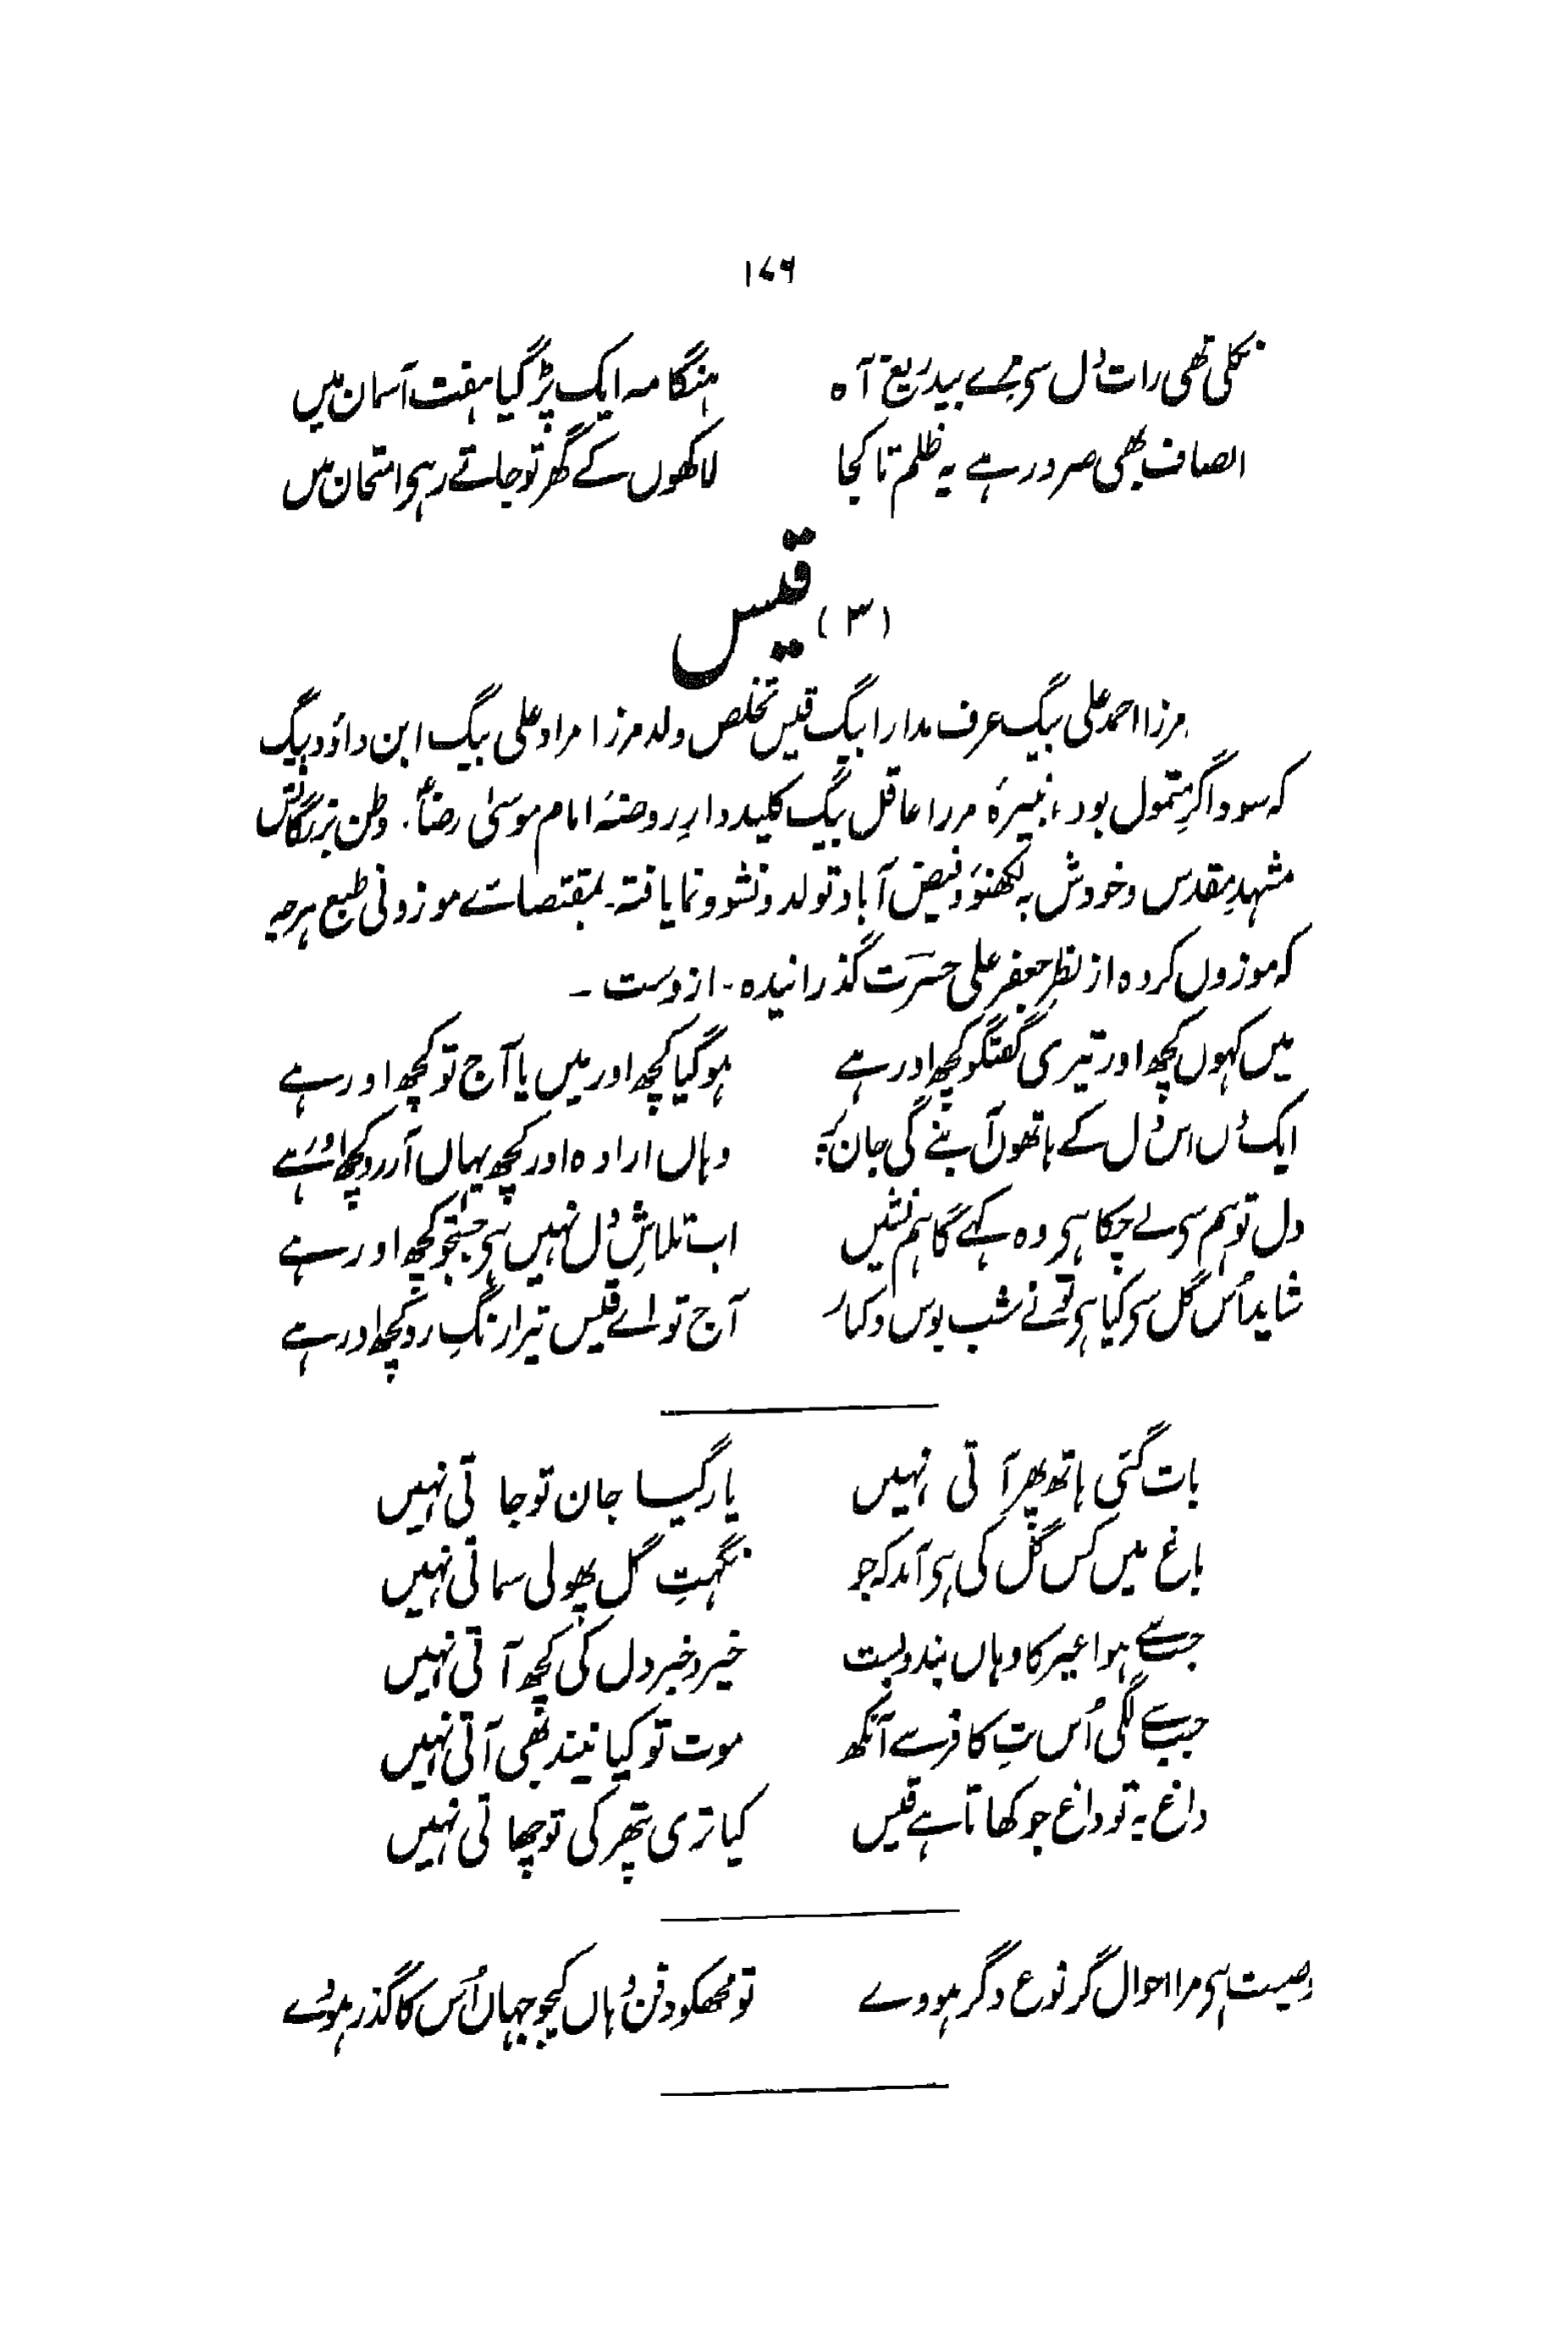 ۱۷۶
نکلی تھی رات دل سی مرے بیدریغ آہ ہنگامہ ایک پڑ گیا ہفت آسمان میں
انصاف بھی ضرور ہے یہ ظلم تا کجا لاکھوں کے گھر تو جاتے رہی امتحان میں
(۳) قیس
مرزا احمد علی بیگ عرف مدارا بیگ قیس تخلص ولد مرزا مراد علی بیگ ابن داؤد بیگ
کہ سوداگرِ متمول بود، نبیرۂ مرزا عاقل بیگ کلید دارِ روضۂ امام موسیٰ رضاؑ۔ وطن بزرگانش
مشہدِ مقدس و خودش بہ لکھنؤ و فیض آباد تولد و نشو و نما یافتہ۔ بمقتضائے موزونی طبع ہرچہ
کہ موزوں کردہ از نظرِ جعفر علی حسرت گذرانیدہ۔ از وست۔
میں کہوں کچھ اور تیری گفتگو کچھ اور ہے ہو گیا کچھ اور میں یا آج تو کچھ اور ہے
ایک دن اس دل کے ہاتھوں آ بنے گی جان پر وہاں ارادہ اور کچھ یہاں آرزو کچھ اور ہے
دل تو ہم سی لے چکا ہی وہ کہے گا ہم نشیں اب تلاشِ دل نہیں ہی جستجو کچھ اور ہے
شاید اُس گل سی کیا ہی تو نے شب بوس و کنار آج تو اے قیس تیرا رنگِ رو کچھ اور ہے
بات گئی ہاتھ پھر آتی نہیں یار گیا جان تو جاتی نہیں
باغ میں کس گل کی ہی آمد کہ جو نگہتِ گل پھولی سماتی نہیں
جب سے ہوا غیر کا وہاں بندوبست خیر و خبر دل کی کچھ آتی نہیں
جب سے لگی اُس بتِ کافر سے آنکھ موت تو کیا نیند بھی آتی نہیں
داغ پہ تو داغ جو کھاتا ہے قیس کیا تری پتھر کی تو چھاتی نہیں
وصیت ہی مرا احوال گر نوع دگر ہووے تو مجھکو دفن وہاں کیجو جہاں اُس کا گذر ہووے